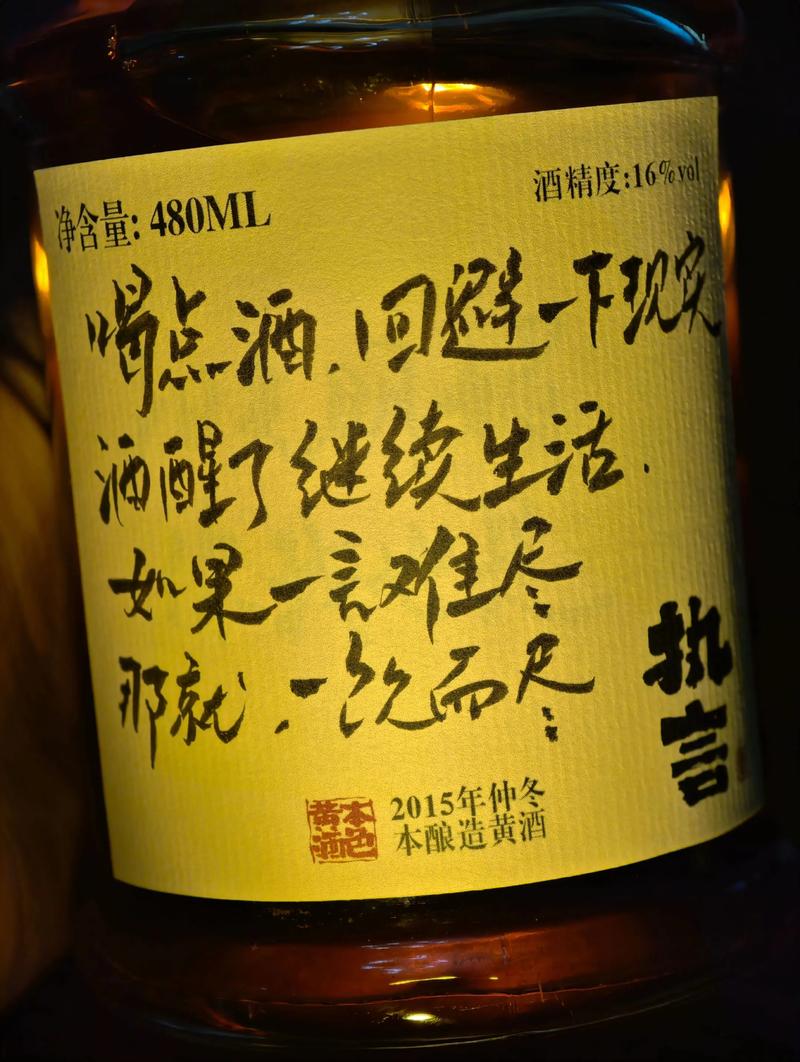 净含量: 480ML
酒精度:16%vol
喝点酒.回避一下现实
酒醒了继续生活.
如果一言难尽
那就.一饮而尽
执言
本色黄酒
2015年仲冬
本酿造黄酒